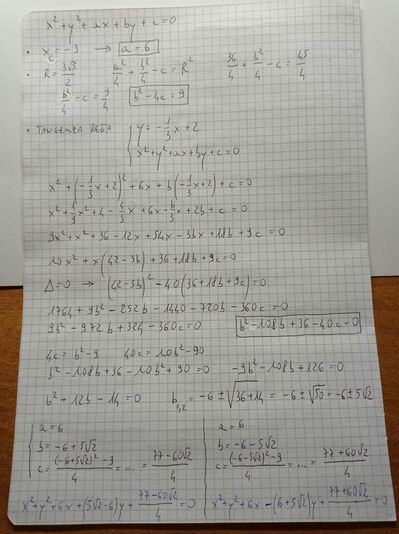 x² + y² + ax + by + c = 0
• x_c = -3 → a = 6
• R = 3√5/2 a²/4 + b²/4 - c = R² 36/4 + b²/4 - c = 45/4
b²/4 - c = 9/4 b² - 4c = 9
• TANGENZA RETTA { y = -1/3 x + 2
x² + y² + ax + by + c = 0
x² + (-1/3 x + 2)² + 6x + b(-1/3 x + 2) + c = 0
x² + 1/9 x² + 4 - 4/3 x + 6x - b/3 x + 2b + c = 0
9x² + x² + 36 - 12x + 54x - 3bx + 18b + 9c = 0
10x² + x(42 - 3b) + 36 + 18b + 9c = 0
Δ = 0 → (42 - 3b)² - 40(36 + 18b + 9c) = 0
1764 + 9b² - 252b - 1440 - 720b - 360c = 0
9b² - 972b + 324 - 360c = 0 b² - 108b + 36 - 40c = 0
4c = b² - 9 40c = 10b² - 90
b² - 108b + 36 - 10b² + 90 = 0 -9b² - 108b + 126 = 0
b² + 12b - 14 = 0 b₁,₂ = -6 ± √36 + 14 = -6 ± √50 = -6 ± 5√2
{ a = 6 { a = 6
b = -6 + 5√2 b = -6 - 5√2
c = (-6+5√2)² - 9 / 4 = .... = 77 - 60√2 / 4 c = (-6-5√2)² - 9 / 4 = ... = 77 + 60√2 / 4
x² + y² + 6x + (5√2 - 6)y + 77 - 60√2 / 4 = 0 x² + y² + 6x - (6 + 5√2)y + 77 + 60√2 / 4 = 0